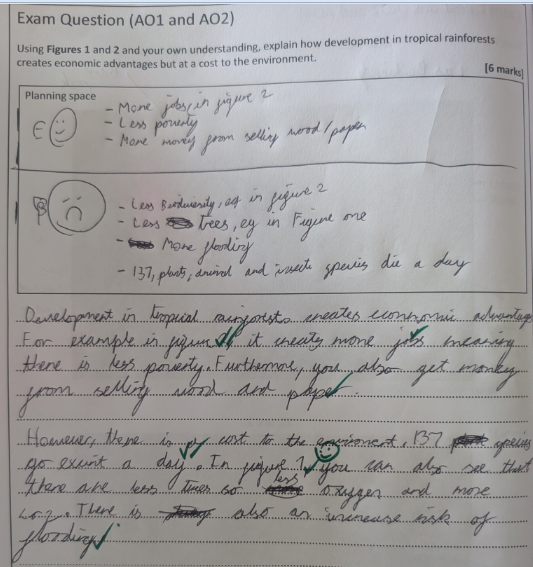 Exam Question (AO1 and AO2)
Using Figures 1 and 2 and your own understanding, explain how development in tropical rainforests
creates economic advantages but at a cost to the environment.
[6 marks]
Planning space
- More jobs, in figure 2
E
- Less poverty
- More money from selling wood/paper
- Less Biodiversity, eg in figure 2
- Less trees, eg in Figure one
- More flooding
- 137, plants, animal and insects species die a day
Development in tropical rainforests creates economic advantage
For example in figure it creates more jobs meaning
there is less poverty. Furthermore, you also get money
from selling wood and paper.
However, there is cost to the enviroment. 137 species
go exinit a day. In figure 1 you can also see that
there are less trees so less oxygen and more
co2. There is also an increase risk of
flooding.